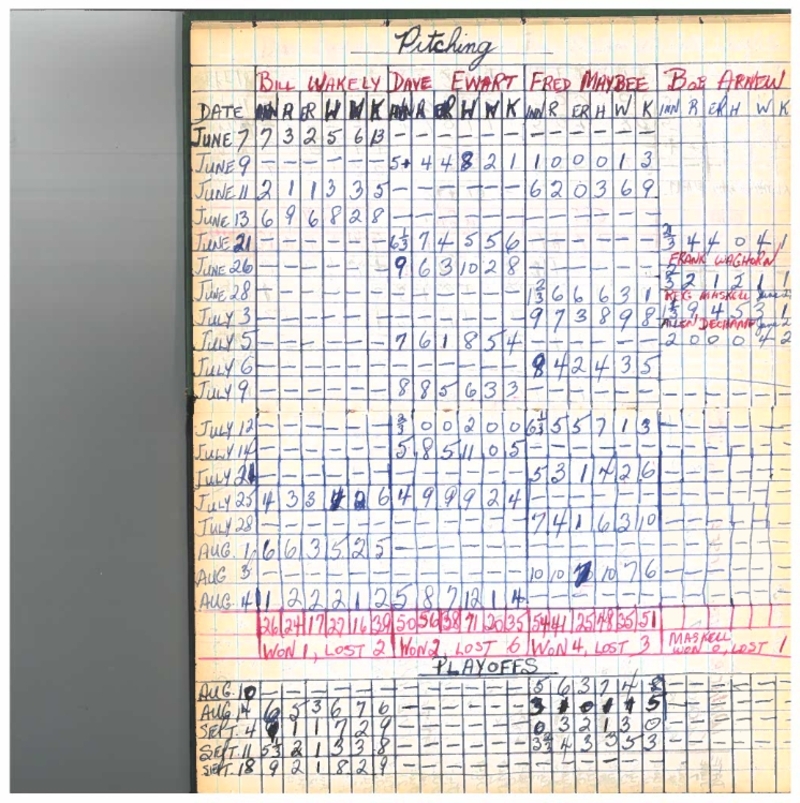 Pitching
BILL WAKELY DAVE EWART FRED MAYBEE BOB ARNEW
DATE INN R ER H W K INN R ER H W K INN R ER H W K INN R ER H W K
JUNE 7 7 3 2 5 6 13 - - - - - - - - - - - -
JUNE 9 - - - - - - 5+ 4 4 8 2 1 1 0 0 0 1 3
JUNE 11 2 1 1 3 3 5 - - - - - - 6 2 0 3 6 9
JUNE 13 6 9 6 8 2 8 - - - - - - - - - - - -
JUNE 21 - - - - - - 6⅓ 7 4 5 5 6 - - - - - - ⅔ 4 4 0 4 1
FRANK WAGHORN
JUNE 26 - - - - - - 9 6 3 10 2 8 - - - - - -
JUNE 28 - - - - - - - - - - - - 1⅔ 6 6 6 3 1 2 1 2 1 1
REG MASKELL
JULY 3 - - - - - - - - - - - - 9 7 3 8 9 8 9 4 5 3 1
ALLEN
JULY 5 - - - - - - 7 6 1 8 5 4 - - - - - - 2 0 0 0 4 2
JULY 6 - - - - - - - - - - - - 8 4 2 4 3 5
JULY 9 - - - - - - 8 8 5 6 3 3 - - - - - - - - - - - -
JULY 12 - - - - - - ⅔ 0 0 2 0 0 6⅓ 5 5 7 1 3 - - - - - -
JULY 14 - - - - - - 5 8 5 11 0 5 - - - - - - - - - - - -
JULY 21 - - - - - - - - - - - - 5 3 1 4 2 6 - - - - - -
JULY 25 4 3 3 4 2 6 4 9 9 9 2 4 - - - - - - - - - - - -
JULY 28 - - - - - - - - - - - - 7 4 1 6 3 10 - - - - - -
AUG. 1 6 6 3 5 2 5 - - - - - - - - - - - - - - - - - -
AUG 3 - - - - - - - - - - - - 10 10 10 7 6 - - - - - -
AUG. 4 1 2 2 2 1 2 5 8 7 12 1 4 - - - - - - - - - - - -
26 24 17 27 16 39 50 56 38 71 20 35 54 41 25 48 35 51
WON 1, LOST 2 WON 2, LOST 6 WON 4, LOST 3 MASKELL WON 0, LOST 1
PLAYOFFS
AUG. 10 - - - - - - - - - - - - 5 6 3 7 4 8 - - - - - -
AUG 14 6 5 3 6 7 6 - - - - - - 3 1 0 1 1 5 - - - - - -
SEPT. 4 1 1 7 2 9 - - - - - - 0 3 2 1 3 0 - - - - - -
SEPT. 11 5⅓ 2 1 3 3 8 - - - - - - 3⅔ 4 3 3 5 3 - - - - - -
SEPT. 18 9 2 1 8 2 9 - - - - - - - - - - - - - - - - - -